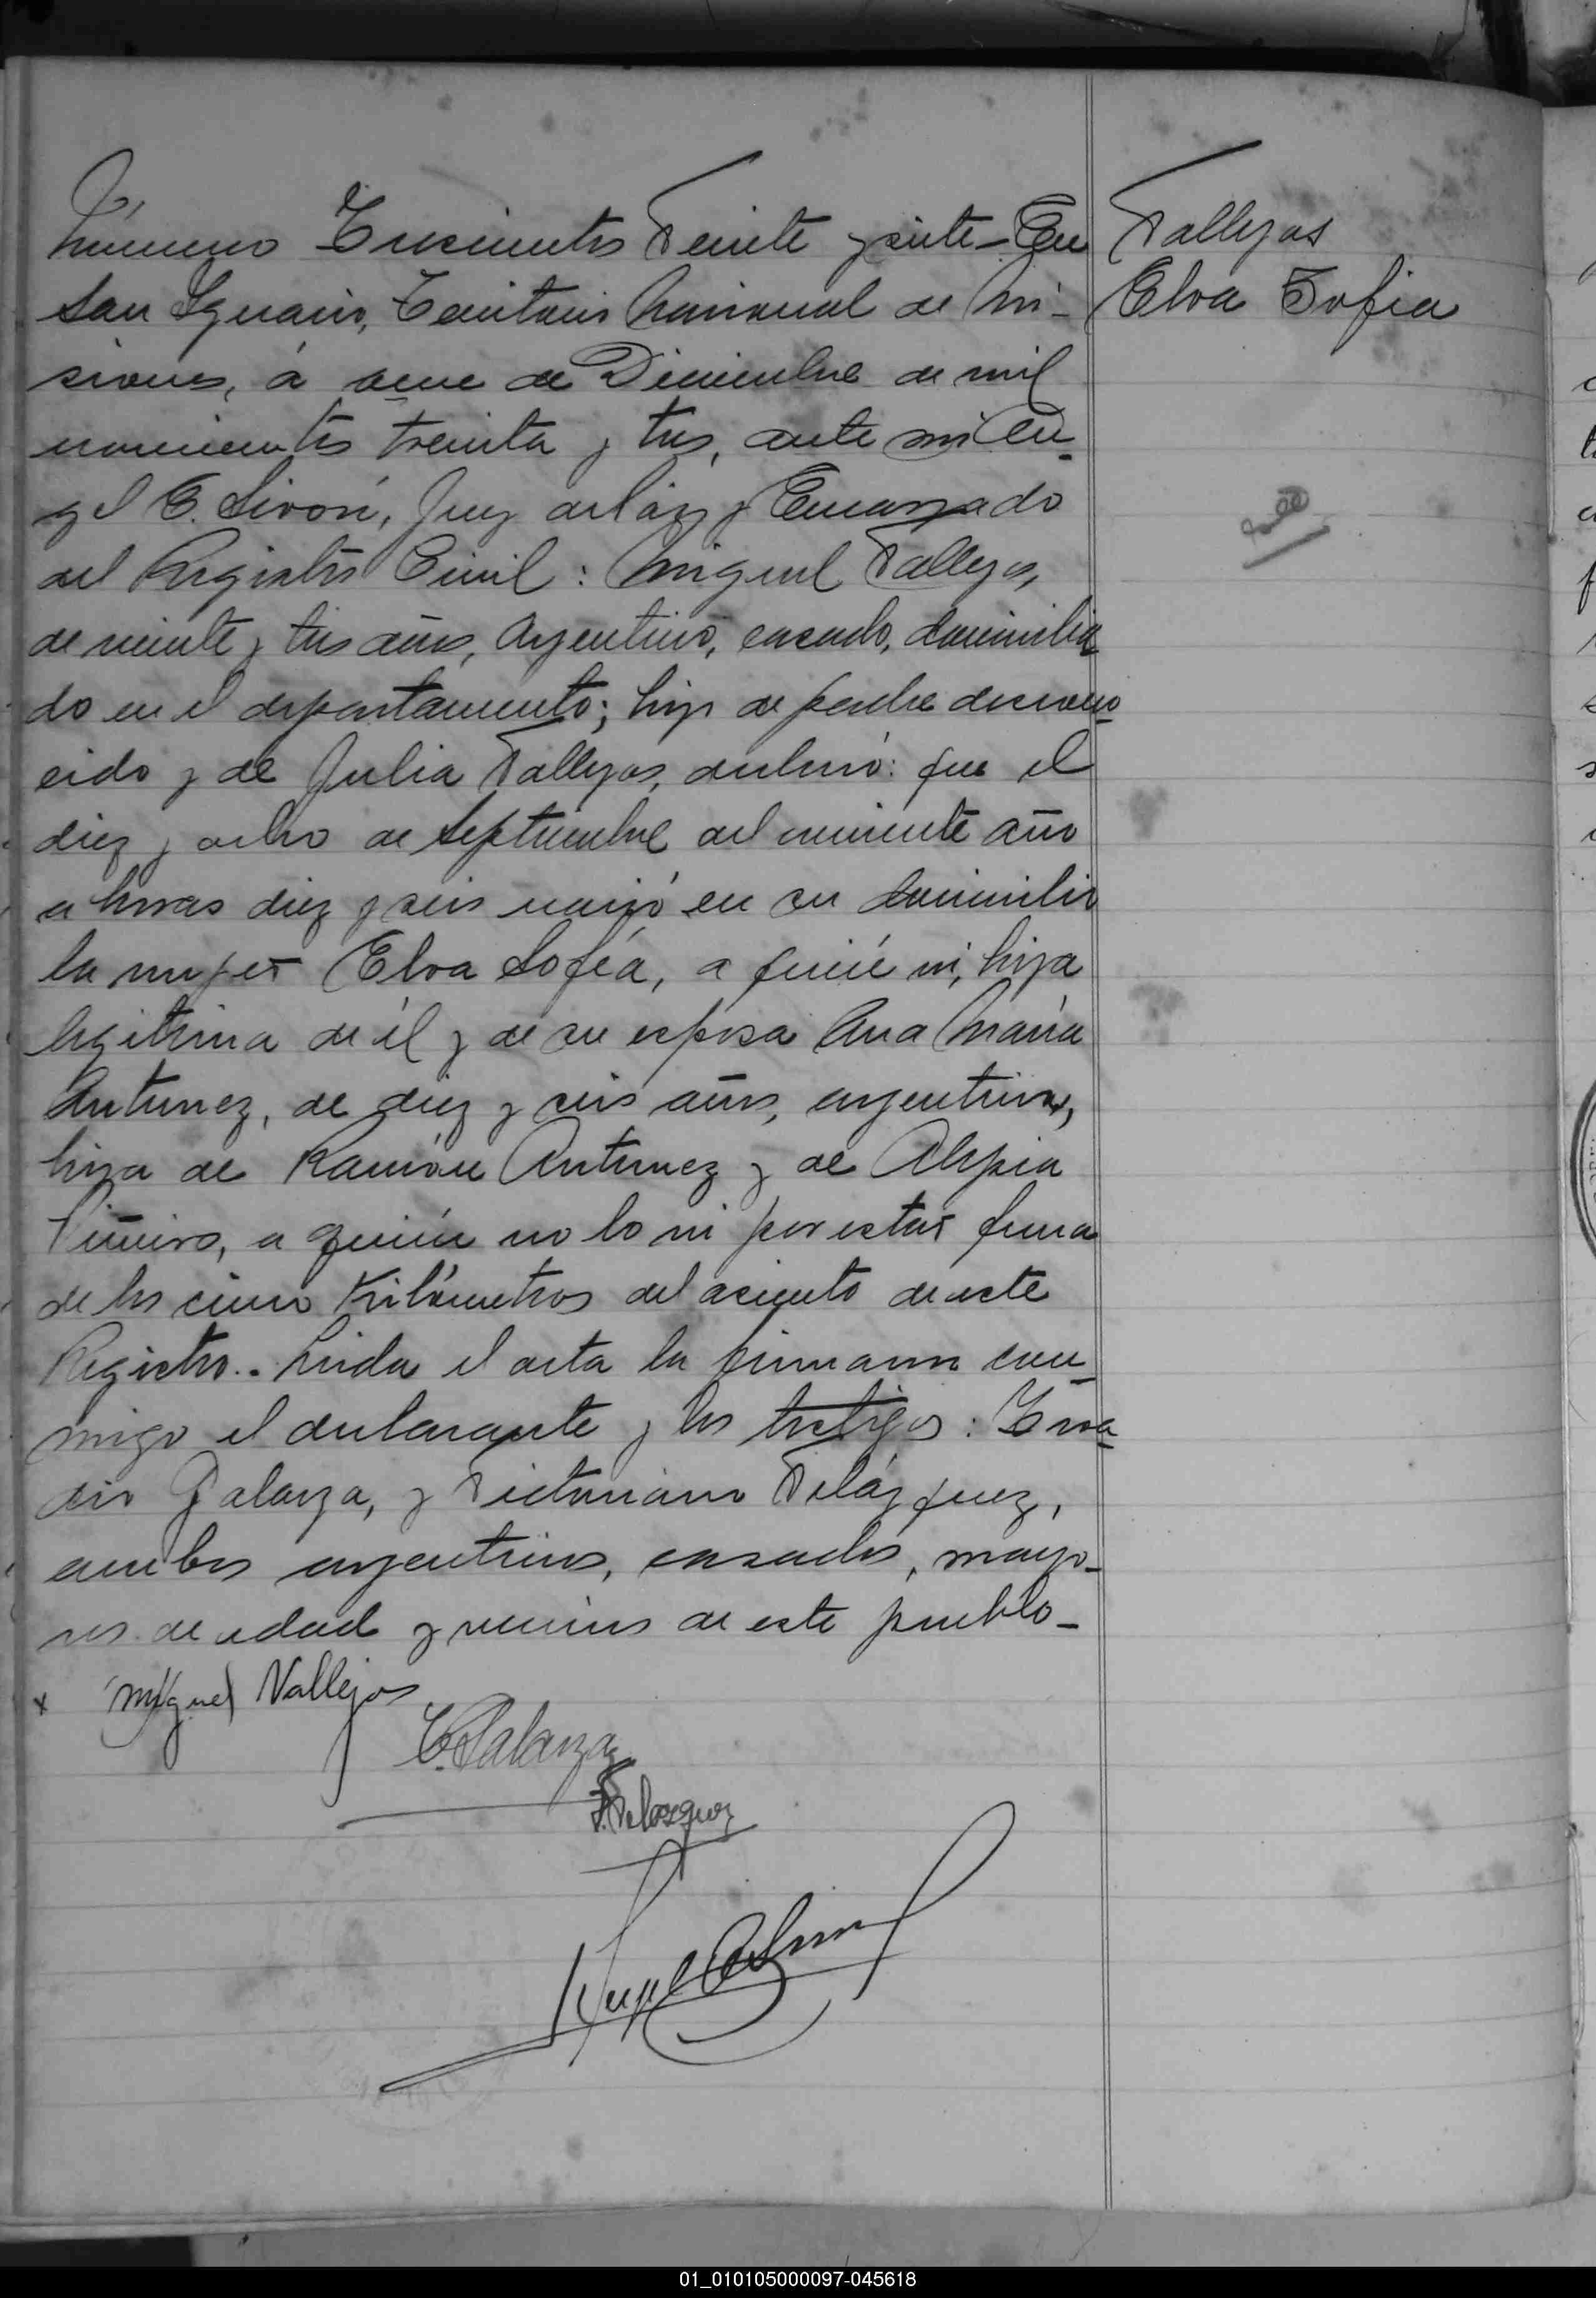 Número Trescientos Veinte y siete - En
San Ignacio, Territorio Nacional de Mi-
siones, á once de Diciembre de mil
novecientos treinta y tres, ante mi
gel C. Livoni, Juez de Paz y Encargado
del Registro Civil: Miguel Vallejos,
de veinte y tres años, Argentino, casado, domicilia
do en el departamento; hijo de padre descono
cido y de Julia Vallejos, declaró: que el
diez y ocho de Septiembre del corriente año
a horas diez y seis nació en su domicilio
la mujer Elva Sofía, a quién vi, hija
legítima de él y de su esposa Ana María
Antunez, de diez y seis años, argentina,
hija de Ramón Antunez y de Alepia
Piñeiro, a quién no lo vi por estar fuera
de los cinco Kilómetros del asiento de este
Registro.- Leída el acta la firmaron con-
migo el declarante y los testigos:
Galarza, y Victoriano Velázquez,
ambos argentinos, casados, mayo-
res de edad y vecinos de este pueblo-
x Miguel Vallejos
C. Galarza
V. Velazquez
Vallejos
Elva Sofia
01_010105000097-045618